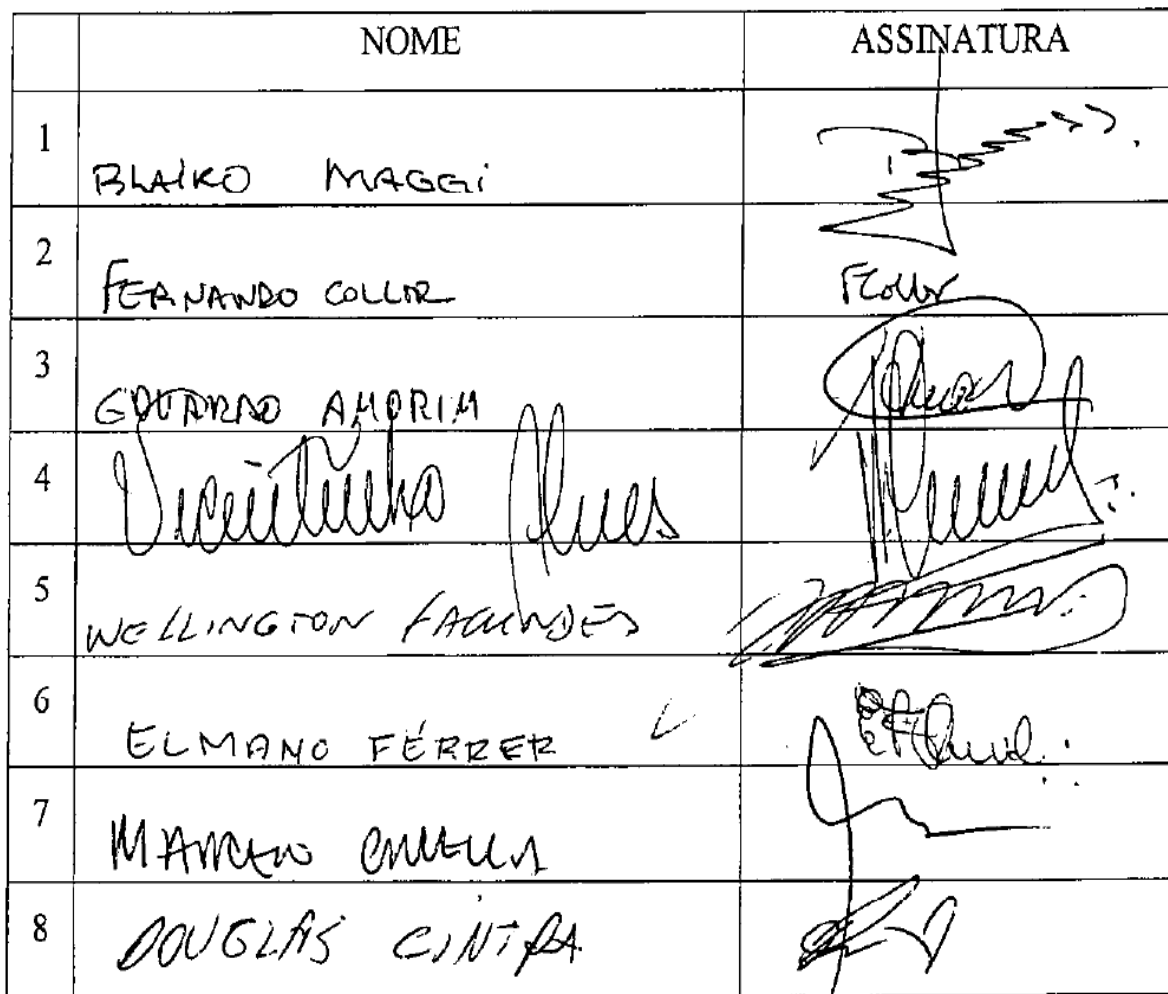 NOME ASSINATURA
1 BLAIRO MAGGI
2 FERNANDO COLLOR FCollor
3 EDUARDO AMORIM
4 Vicentinho Alves
5 WELLINGTON FAGUNDES
6 ELMANO FÉRRER
7 MARCELO CRIVELLA
8 DOUGLAS CINTRA